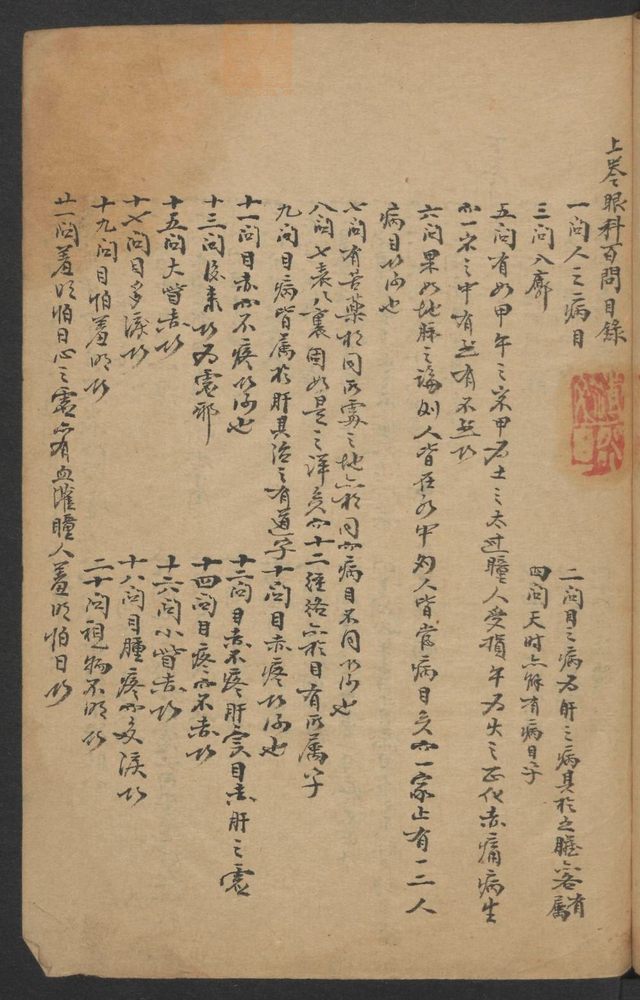 上卷眼科百問目錄
一問人之病目
二問目之病為肝之病其於五臟亦各有所屬
三問八廓
四問天時亦解有病目乎
五問有如甲午之來甲為土之太過瞳人受損午為火之正化赤痛病生
而一家之中有然有不然何
六問果如地脈之論則人皆在氣中為人皆當病目矣而一家止有一二人
病目何也
七問有苦藥於同而處之地亦於同而病目不同何也
八問七表八裏固如是之詳矣而十二經絡亦於目有所屬乎
九問目病皆屬於肝其治之有道乎
十問目赤疼何也
十一問目赤而不疼何也
十二問目赤不疼肝實目赤肝之虛
十三問後來何為虛邪
十四問目疼而不赤何
十五問大眥赤何
十六問小眥赤何
十七問目多淚何
十八問目腫疼而多淚何
十九問目怕羞明何
二十問視物不明何
廿一問羞明怕日心之虛亦有血灌瞳人羞明怕日何